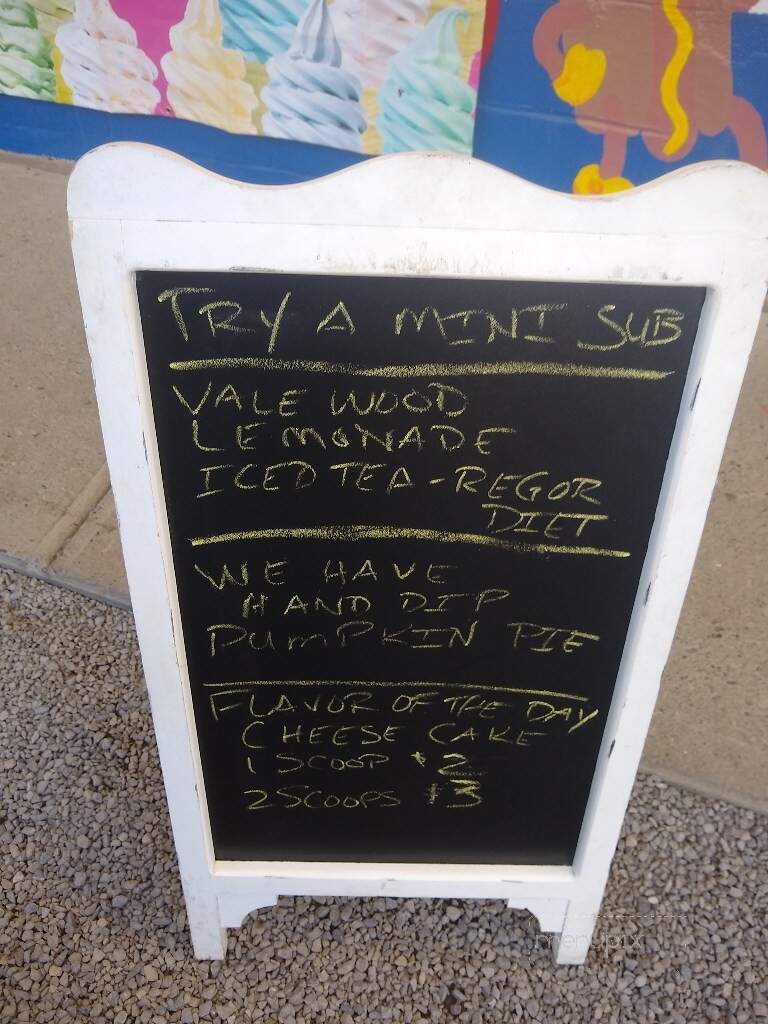 TRY A MINI SUB
VALE WOOD
LEMONADE
ICED TEA - REG OR
DIET
WE HAVE
HAND DIP
PUMPKIN PIE
FLAVOR OF THE DAY
CHEESE CAKE
1 SCOOP $2
2 SCOOPS $3
menupix